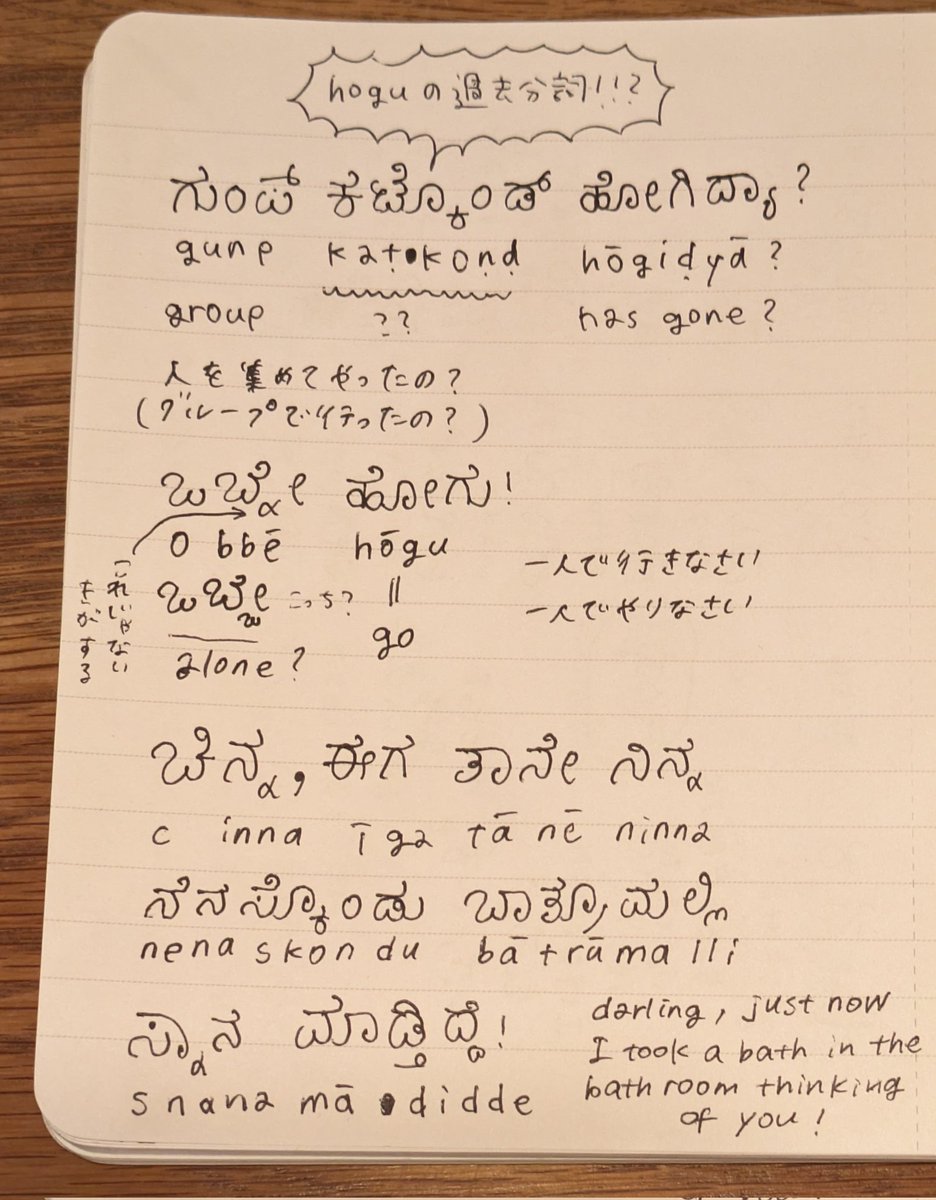 hoguの過去分詞!!?
ಗುಂಪ್ ಕಟ್ಕೊಂಡ್ ಹೋಗಿದ್ಯಾ?
gunp kaṭkoṇḍ hōgiḍyā?
group ?? has gone?
人を集めてやったの?
(グループで行ったの?)
ಒಬ್ನೇ ಹೋಗು!
o bbē hōgu
一人で行きなさい
ಒಬ್ಬೇ こっち? ||
一人でやりなさい
alone? go
これじゃない
きがする
ಚಿನ್ನ, ಈಗ ತಾನೇ ನಿನ್ನ
c inna īga tā nē ninna
ನೆನಸ್ಕೊಂಡು ಬಾತ್ರೂಮಲ್ಲಿ
nena skon du bā trāma lli
ಸ್ನಾನ ಮಾಡ್ತಿದ್ದೆ!
snana mā didde
darling, just now
I took a bath in the
bathroom thinking
of you!